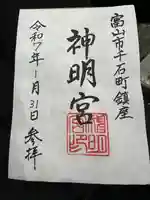 富山市千石町鎮座
神明宮
令和7年1月31日参拝